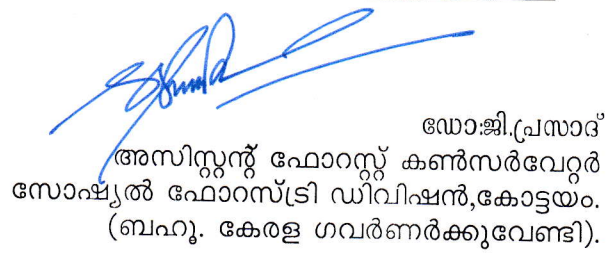 ഡോ:ജി.പ്രസാദ്
അസിസ്റ്റന്റ് ഫോറസ്റ്റ് കൺസർവേറ്റർ
സോഷ്യൽ ഫോറസ്ട്രി ഡിവിഷൻ,കോട്ടയം.
(ബഹൂ. കേരള ഗവർണർക്കുവേണ്ടി).